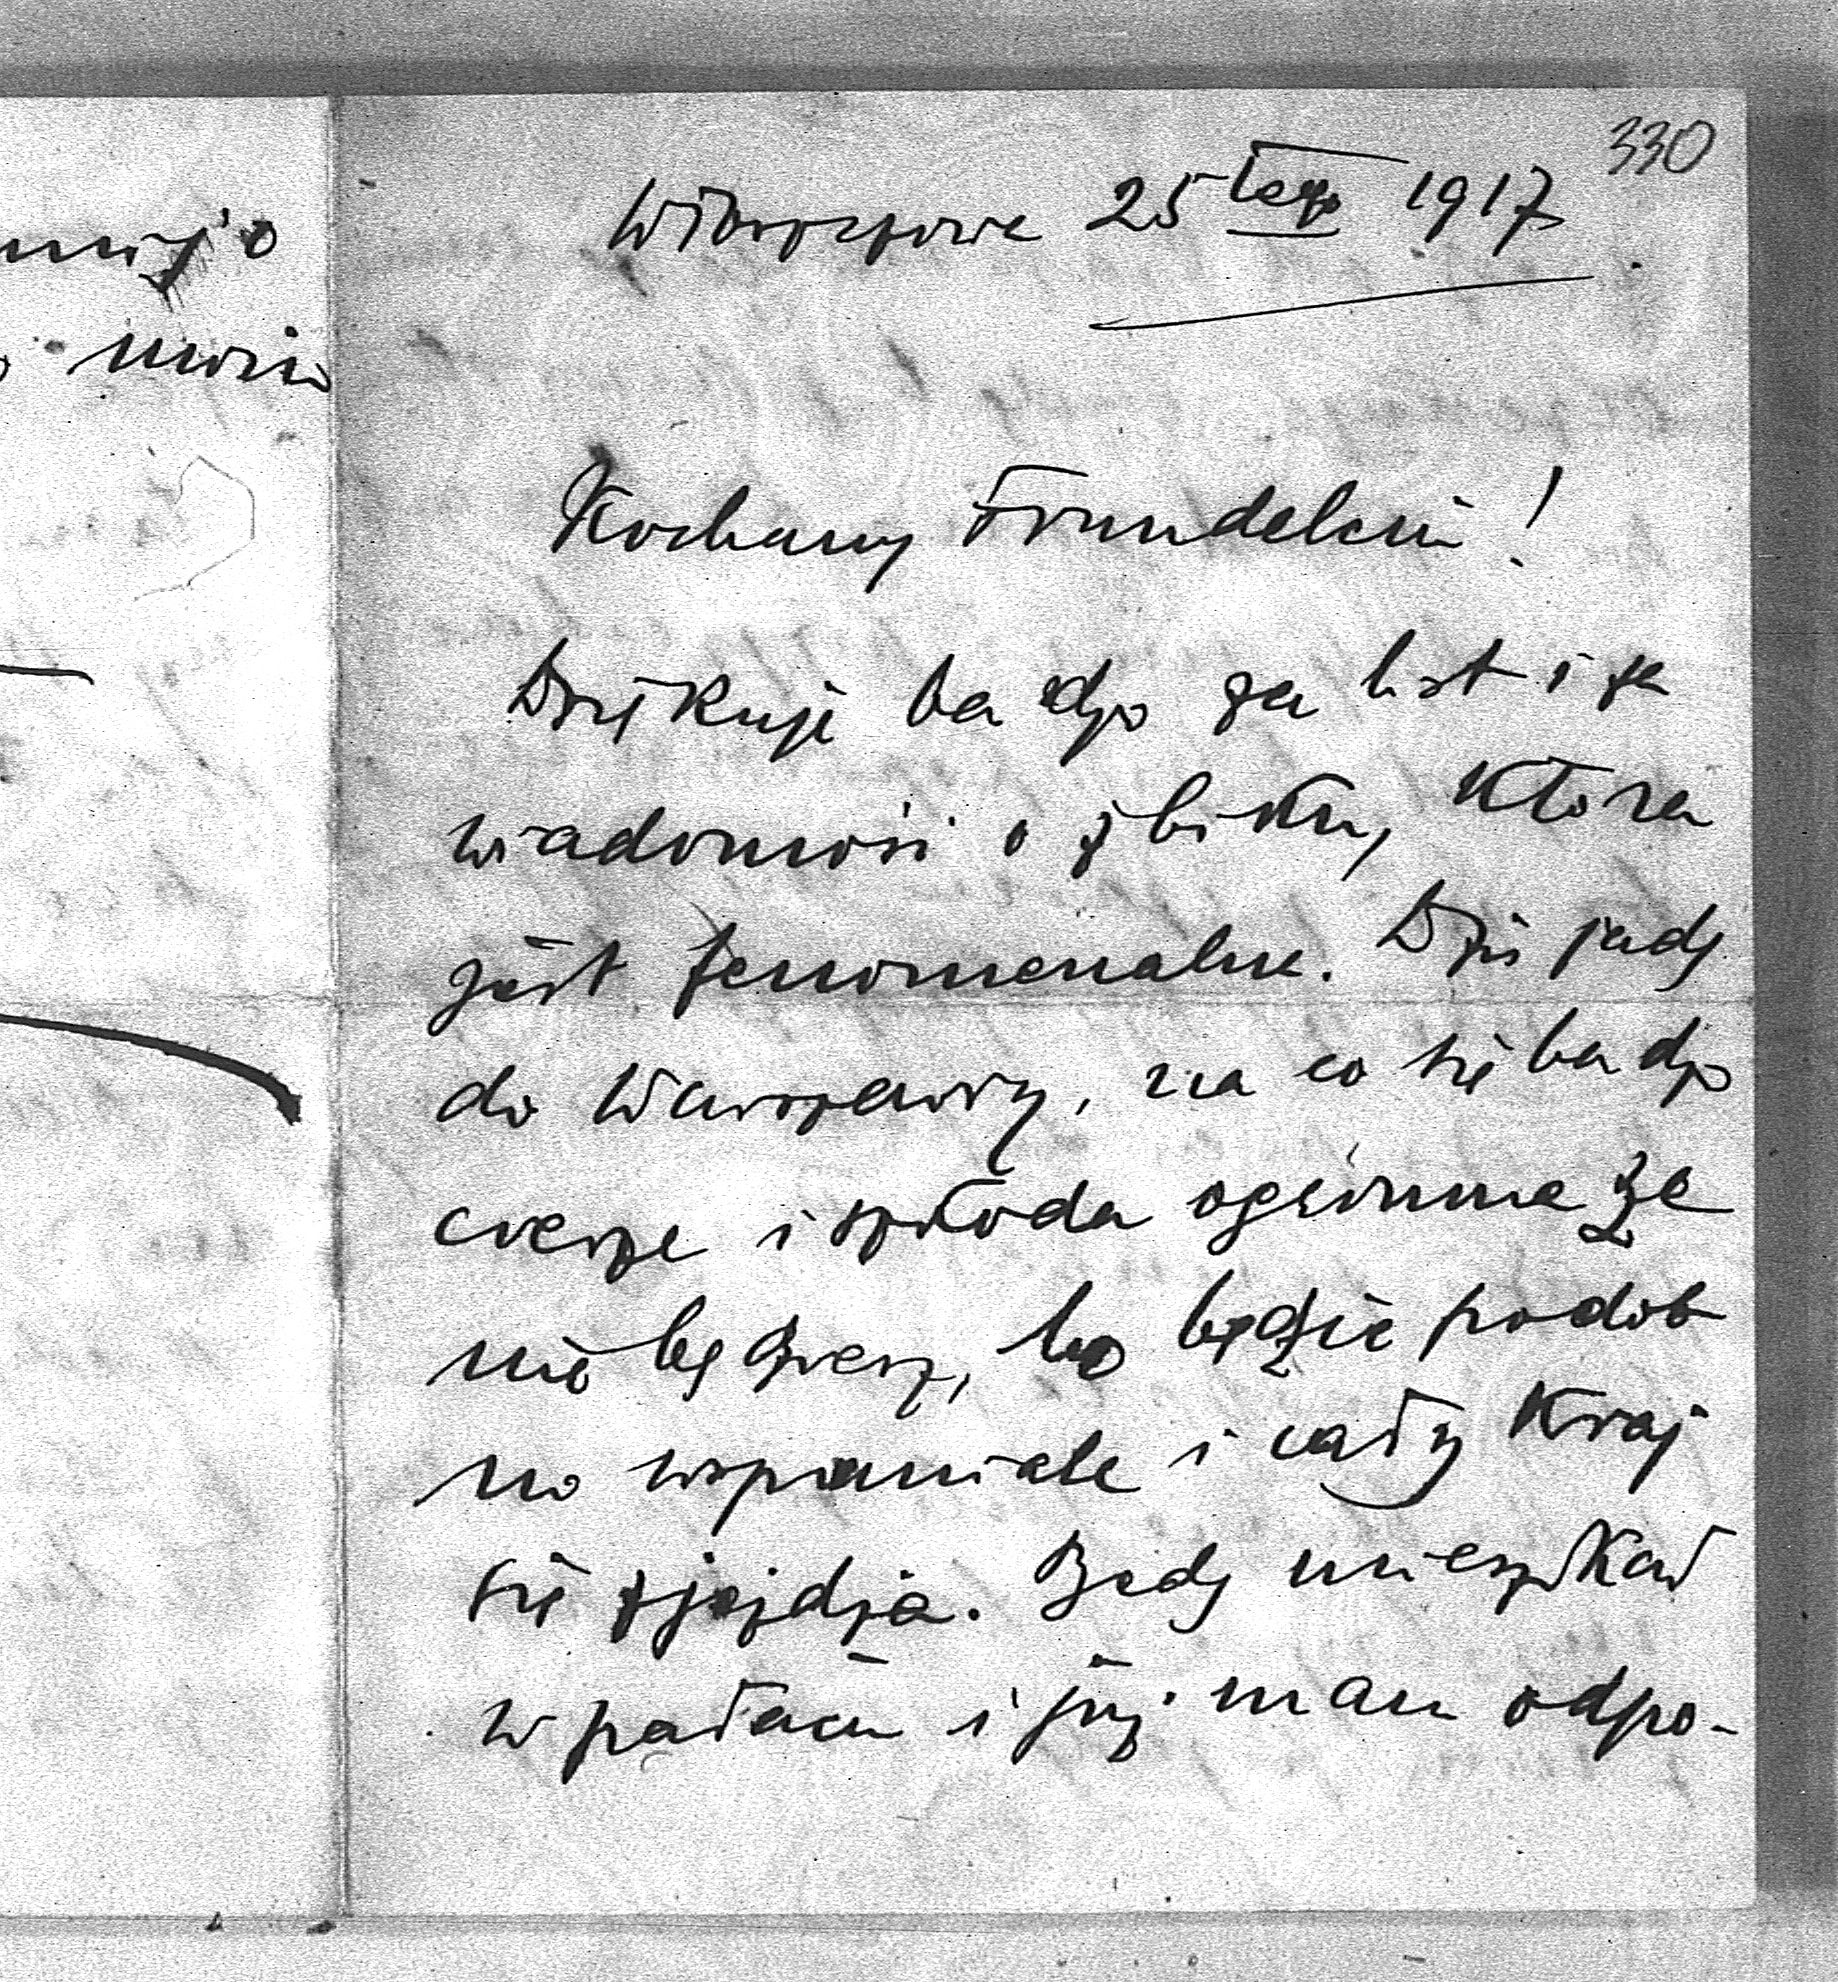 330
25 lego 1917
Kochany
Dziękuję badzo za list i za
wiadomość o żbiku, która
jest fenomenalne. Dziś jadę
do Warszawy, na co się badzo
ciesze i szkoda ogromna że
nie będziesz, bo będzie podob
no wspaniale i cały kraj
się zjeżdża. Będę mieszkał
w pałacu i już mam odpo-